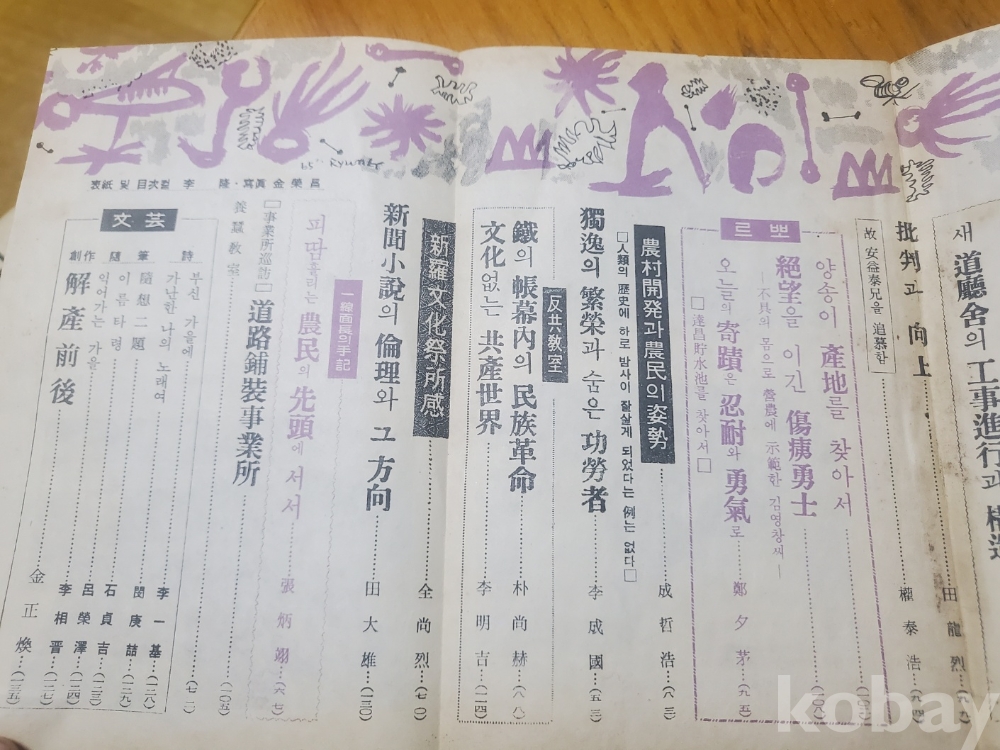 새 道廳舍의 工事進行과 構造
田龍烈
批判과 向上
權泰浩 (九四)
故 安益泰兄을 追慕함
르뽀
양송이 產地를 찾아서 (一〇八)
絕望을 이긴 傷痍勇士
—不具의 몸으로 營農에 示範한 김영창씨—
오늘의 寄蹟은 忍耐와 勇氣로 鄭夕茅 (九五)
□達昌貯水池를 찾아서□
農村開発과 農民의 姿勢 成哲浩 (八三)
□人類의 歷史에 하로 밤사이 잘살게 되었다는 例는 없다□
獨逸의 繁榮과 숨은 功勞者 李成國 (五三)
反共教室
鐵의 帳幕內의 民族革命 朴尚赫 (八八)
文化없는 共產世界 李明吉 (二四)
新羅文化祭所感 全尚烈 (七〇)
新聞小說의 倫理와 그 方向 田大雄 (一三〇)
一線面長의 手記
피땀흘리는 農民의 先頭에 서서 張炳翊 (六七)
[事業所巡訪] 道路鋪裝事業所 (一〇五)
養蚕教室 (七二)
表紙 및 目次컽 李隆·寫眞 金榮昌
65" RYUNGER
文芸
詩
부신 가을에 李一基 (一二八)
가난한 나의 노래여 閔庚喆 (一二九)
隨筆
隨想二題 石貞吉 (一二三)
이름타령 呂榮澤 (一二四)
익어가는 가을 李相晋 (一二七)
創作
解產前後 金正煥 (一三五)
kobay